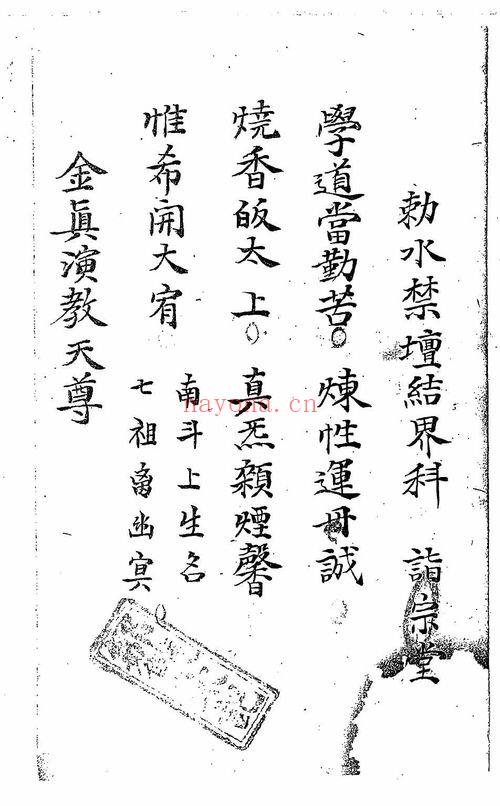 勅水禁壇結界科 詣宗堂
學道當勤苦 煉性運丹誠
燒香皈太上 真炁煙馨
惟希開大宥
南斗上生名
七祖离幽冥
金眞演教天尊
nayona.cn